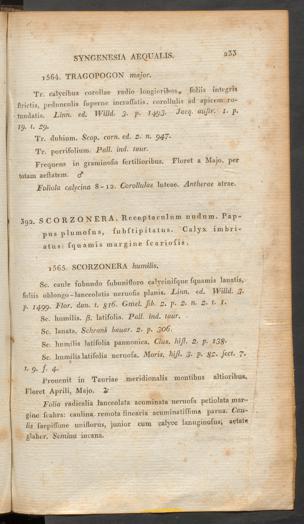 SYNGENESIA AEQUALIS. 233
1564. TRAGOPOGON major.
Tr. calycibus corollae radio longioribus, foliis integris
strictis, pedunculis superne incrassatis, corollulis ad apicem ro-
tundatis. Linn. ed. Willd. 3. p. 1493. Jacq. austr. 1. p.
19. t. 29.
Tr. dubium. Scop. carn. ed. 2. n. 947.
Tr. porrifolium. Pall. ind. taur.
Frequens in graminosis fertilioribus. Floret a Majo, per
totam aestatem. ♂
Foliola calycina 8-12. Corollulae luteae. Antherae atrae.
392. SCORZONERA. Receptaculum nudum. Pap-
pus plumosus, substipitatus. Calyx imbri-
atus: squamis margine scariosis.
1565. SCORZONERA humilis.
Sc. caule subnudo subunifloro calycinisque squamis lanatis,
foliis oblongo-lanceolatis nervosis planis. Linn. ed. Willd. 3.
p. 1499. Flor. dan. t. 816. Gmel. sib. 2. p. 2. n. 2. t. 1.
Sc. humilis. β. latifolia. Pall. ind. taur.
Sc. lanata. Schrank bauar. 2. p. 306.
Sc. humilis latifolia pannonica. Clus. hist. 2. p. 138.
Sc. humilis latifolia nervosa. Moris. hist. 3. p. 82. sect. 7.
t. 9. f. 4.
Prouenit in Tauriae meridionalis montibus altioribus.
Floret Aprili, Majo. ♃
Folia radicalia lanceolata acuminata nervosa petiolata mar-
gine scabra: caulina remota linearia acuminatissima parua. Cau-
lis saepissime uniflorus, junior cum calyce lanuginosus, aetate
glaber. Semina incana.